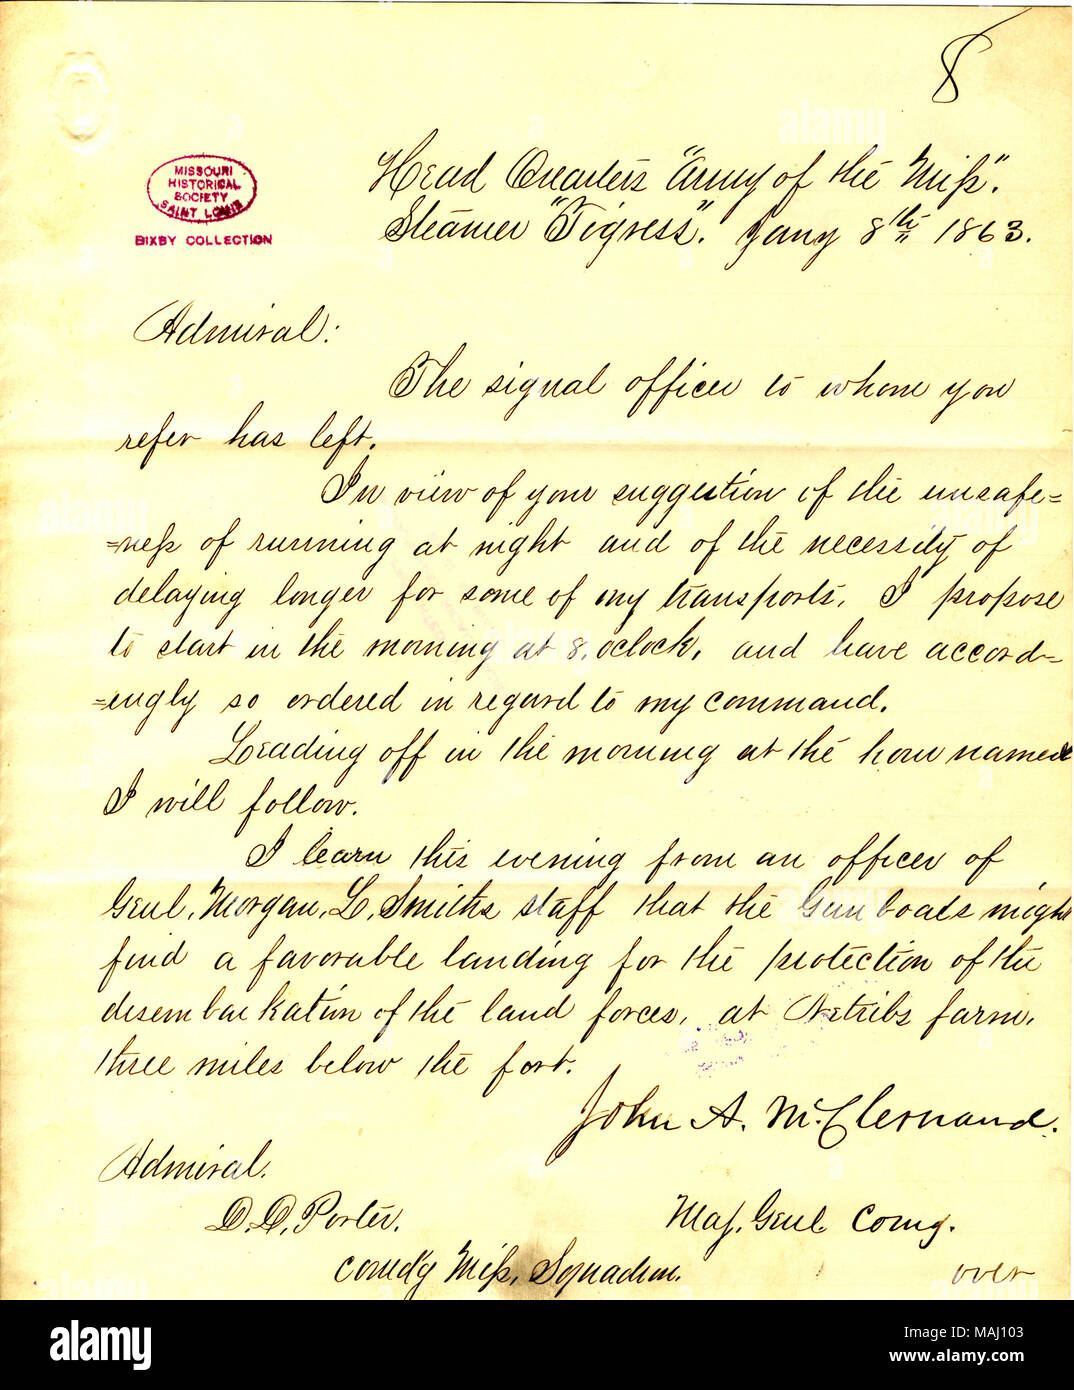 8
MISSOURI
HISTORICAL
SOCIETY
SAINT LOUIS
BIXBY COLLECTION
Head Quarters "Army of the Miss".
Steamer "Tigress". Jany 8th 1863.
Admiral:
The signal officer to whom you
refer has left.
In view of your suggestion of the unsafe=
=ness of running at night and of the necessity of
delaying longer for some of my transports, I propose
to start in the morning at 8, oclock, and have accord=
=ingly so ordered in regard to my command.
Leading off in the morning at the hour named
I will follow.
I learn this evening from an officer of
Genl, Morgan, L, Smiths staff that the Gun boats might
find a favorable landing for the protection of the
disembarkation of the land forces, at farm,
three miles below the fort.
John A. McClernand.
Admiral.
D. D, Porter.
Maj. Genl. Comg.
comd'g Miss, Squadron.
over
alamy
Image ID: MAJ103
www.alamy.com